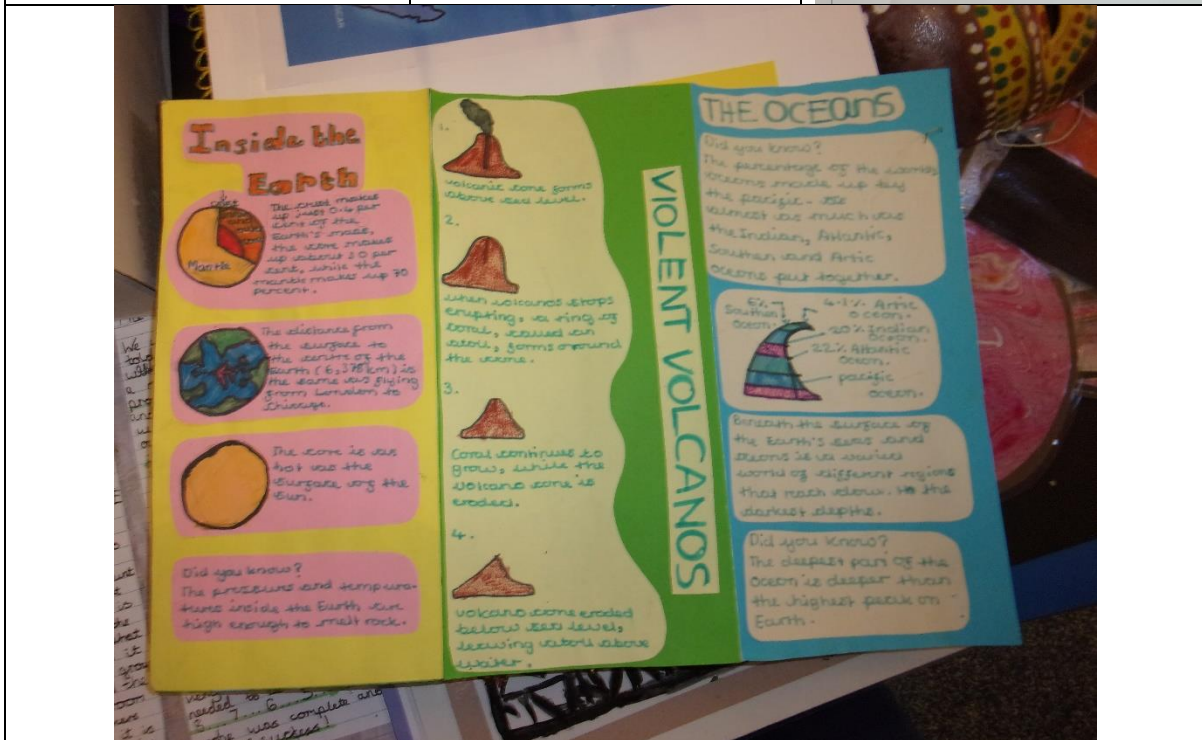 Inside the
Earth
The crust makes
up just 0.4 per
cent of the
Earth's mass,
the core makes
up about 30 per
cent, while the
mantle makes up 70
percent.
Mantle
The distance from
the surface to
the centre of the
Earth (6,378km) is
the same as flying
from London to
Chicago.
The core is as
hot as the
surface of the
Sun.
Did you know?
The pressures and tempura-
tures inside the Earth are
high enough to melt rock.
1.
volcanic cone forms
above sea level.
2.
when volcanos stops
erupting, a ring of
coral, called an
atoll, forms around
the cone.
3.
Coral continues to
grow, while the
volcano cone is
eroded.
4.
volcano cone eroded
below sea level,
leaving atoll above
water.
VIOLENT VOLCANOS
THE OCEANS
Did you know?
The percentage of the worlds
oceans made up by
the pacific -
almost as much as
the Indian, Atlantic,
Southern and Artic
oceans put together.
6%
Southern
Ocean.
4.1% Artic
ocean.
20% Indian
Ocean.
22% Atlantic
Ocean.
pacific
ocean.
Beneath the surface of
the Earth's seas and
oceans is a varied
world of different regions
that reach down to the
darkest depths.
Did you know?
The deepest part of the
Ocean is deeper than
the highest peak on
Earth.
We
needed to
3 7 6
she was complete and